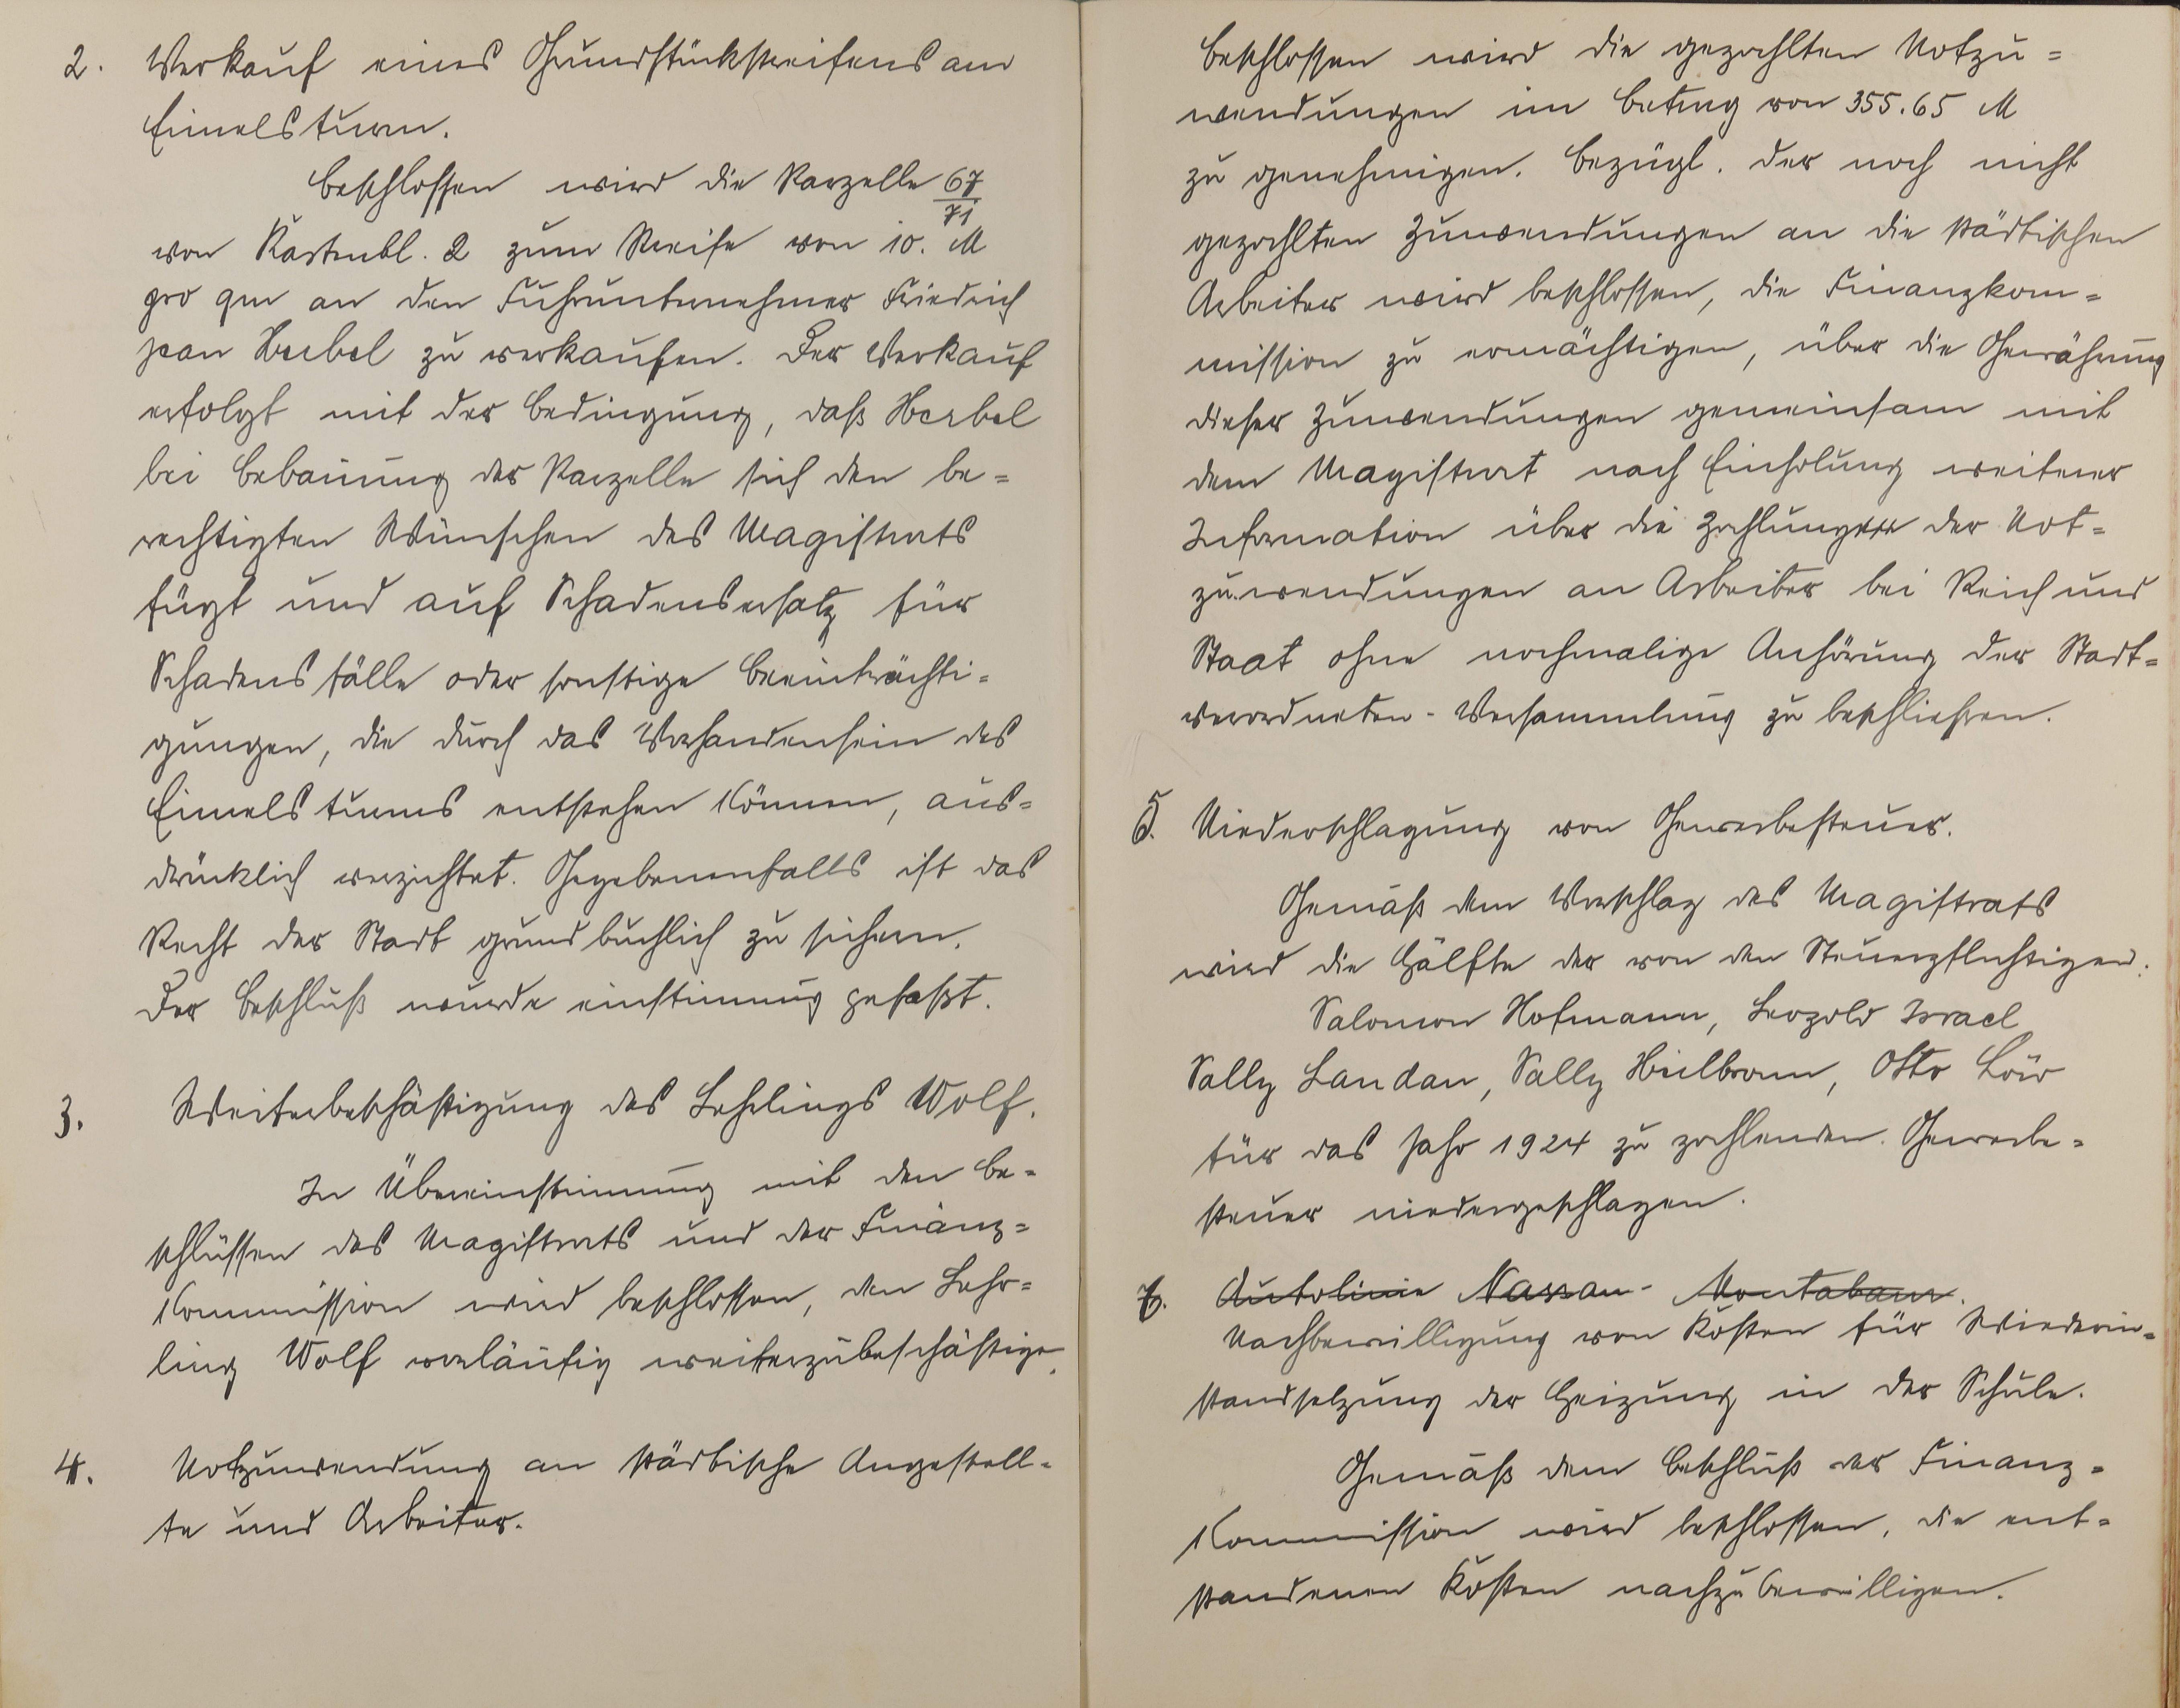 2. Verkauf eines Grundstückstreifens am
Eimelsturm.
Beschlossen wird die Parzelle 67/71
von Kartenbl. 2 zum Preise von 10. M
pro qm an den Fuhrunternehmer Friedrich
Jean Herbel zu verkaufen. Der Verkauf
erfolgt mit der Bedingung, daß Herbel
bei Bebauung der Parzelle sich den be=
rechtigten Wünschen des Magistrats
fügt und auf Schadensersatz für
Schadensfälle oder sonstige Beeinträchti=
gungen, die durch das Vorhandensein des
Eimelsturms entstehen können, aus=
drücklich verzichtet. Gegebenenfalls ist das
Recht der Stadt grundbuchlich zu sichern.
Der Beschluß wurde einstimmig gefaßt.
3. Weiterbeschäftigung des Lehrlings Wolf.
In Übereinstimmung mit den Be=
schlüssen des Magistrats und der Finanz=
Kommission wird beschlossen, den Lehr=
ling Wolf vorläufig weiterzubeschäftigen.
4. Notzuwendung an städtische Angestell=
te und Arbeiter.
Beschlossen wird die gezahlten Notzu=
wendungen im Betrag von 355.65 M
zu genehmigen. Bezügl. der noch nicht
gezahlten Zuwendungen an die städtischen
Arbeiter wird beschlossen, die Finanzkom=
mission zu ermächtigen, über die Gewährung
dieser Zuwendungen gemeinsam mit
dem Magistrat nach Einholung weiterer
Information über die Zahlung der Not=
zuwendungen an Arbeiter bei Reich und
Staat ohne nochmalige Anhörung der Stadt=
verordneten-Versammlung zu beschließen.
5. Niederschlagung von Gewerbesteuer.
Gemäß dem Vorschlag des Magistrats
wird die Hälfte der von den Steuerpflichtigen:
Salomon Hofmann, Leopold Israel
Sally Landau, Sally Heilbronn, Otto Löw
für das Jahr 1924 zu zahlenden Gewerbe=
steuer niedergeschlagen.
Autolinie Nassau-Montabaur.
Nachbewilligung von Kosten für Wiederin=
standsetzung der Heizung in der Schule.
Gemäß dem Beschluß der Finanz=
Kommission wird beschlossen, die ent=
standenen Kosten nachzubewilligen.